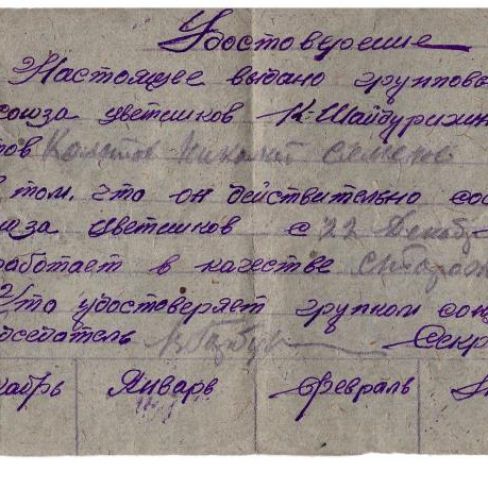 Удостоверение
Настоящее выдано группово
союза цветников К-Шайдурихин
тов Николай семено
в том, что он действительно сос
юза цветников с 22 Декаб
работает в качестве сторож
Что удостоверяет группком союз
едседатель Секр
кабрь Январь Февраль